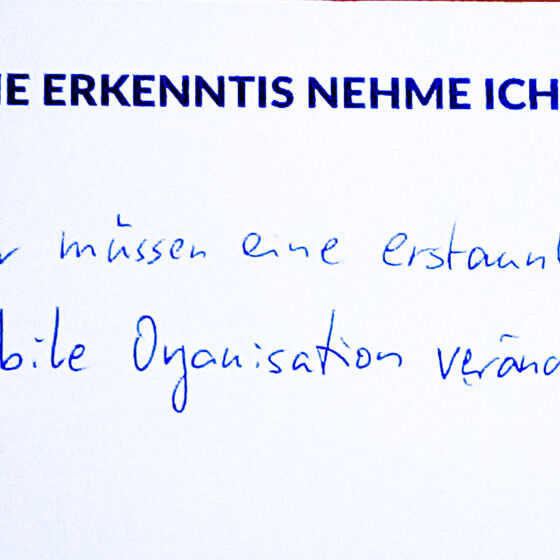 IE ERKENNTIS NEHME ICH
r müssen eine erstaunl
bile Organisation veränd